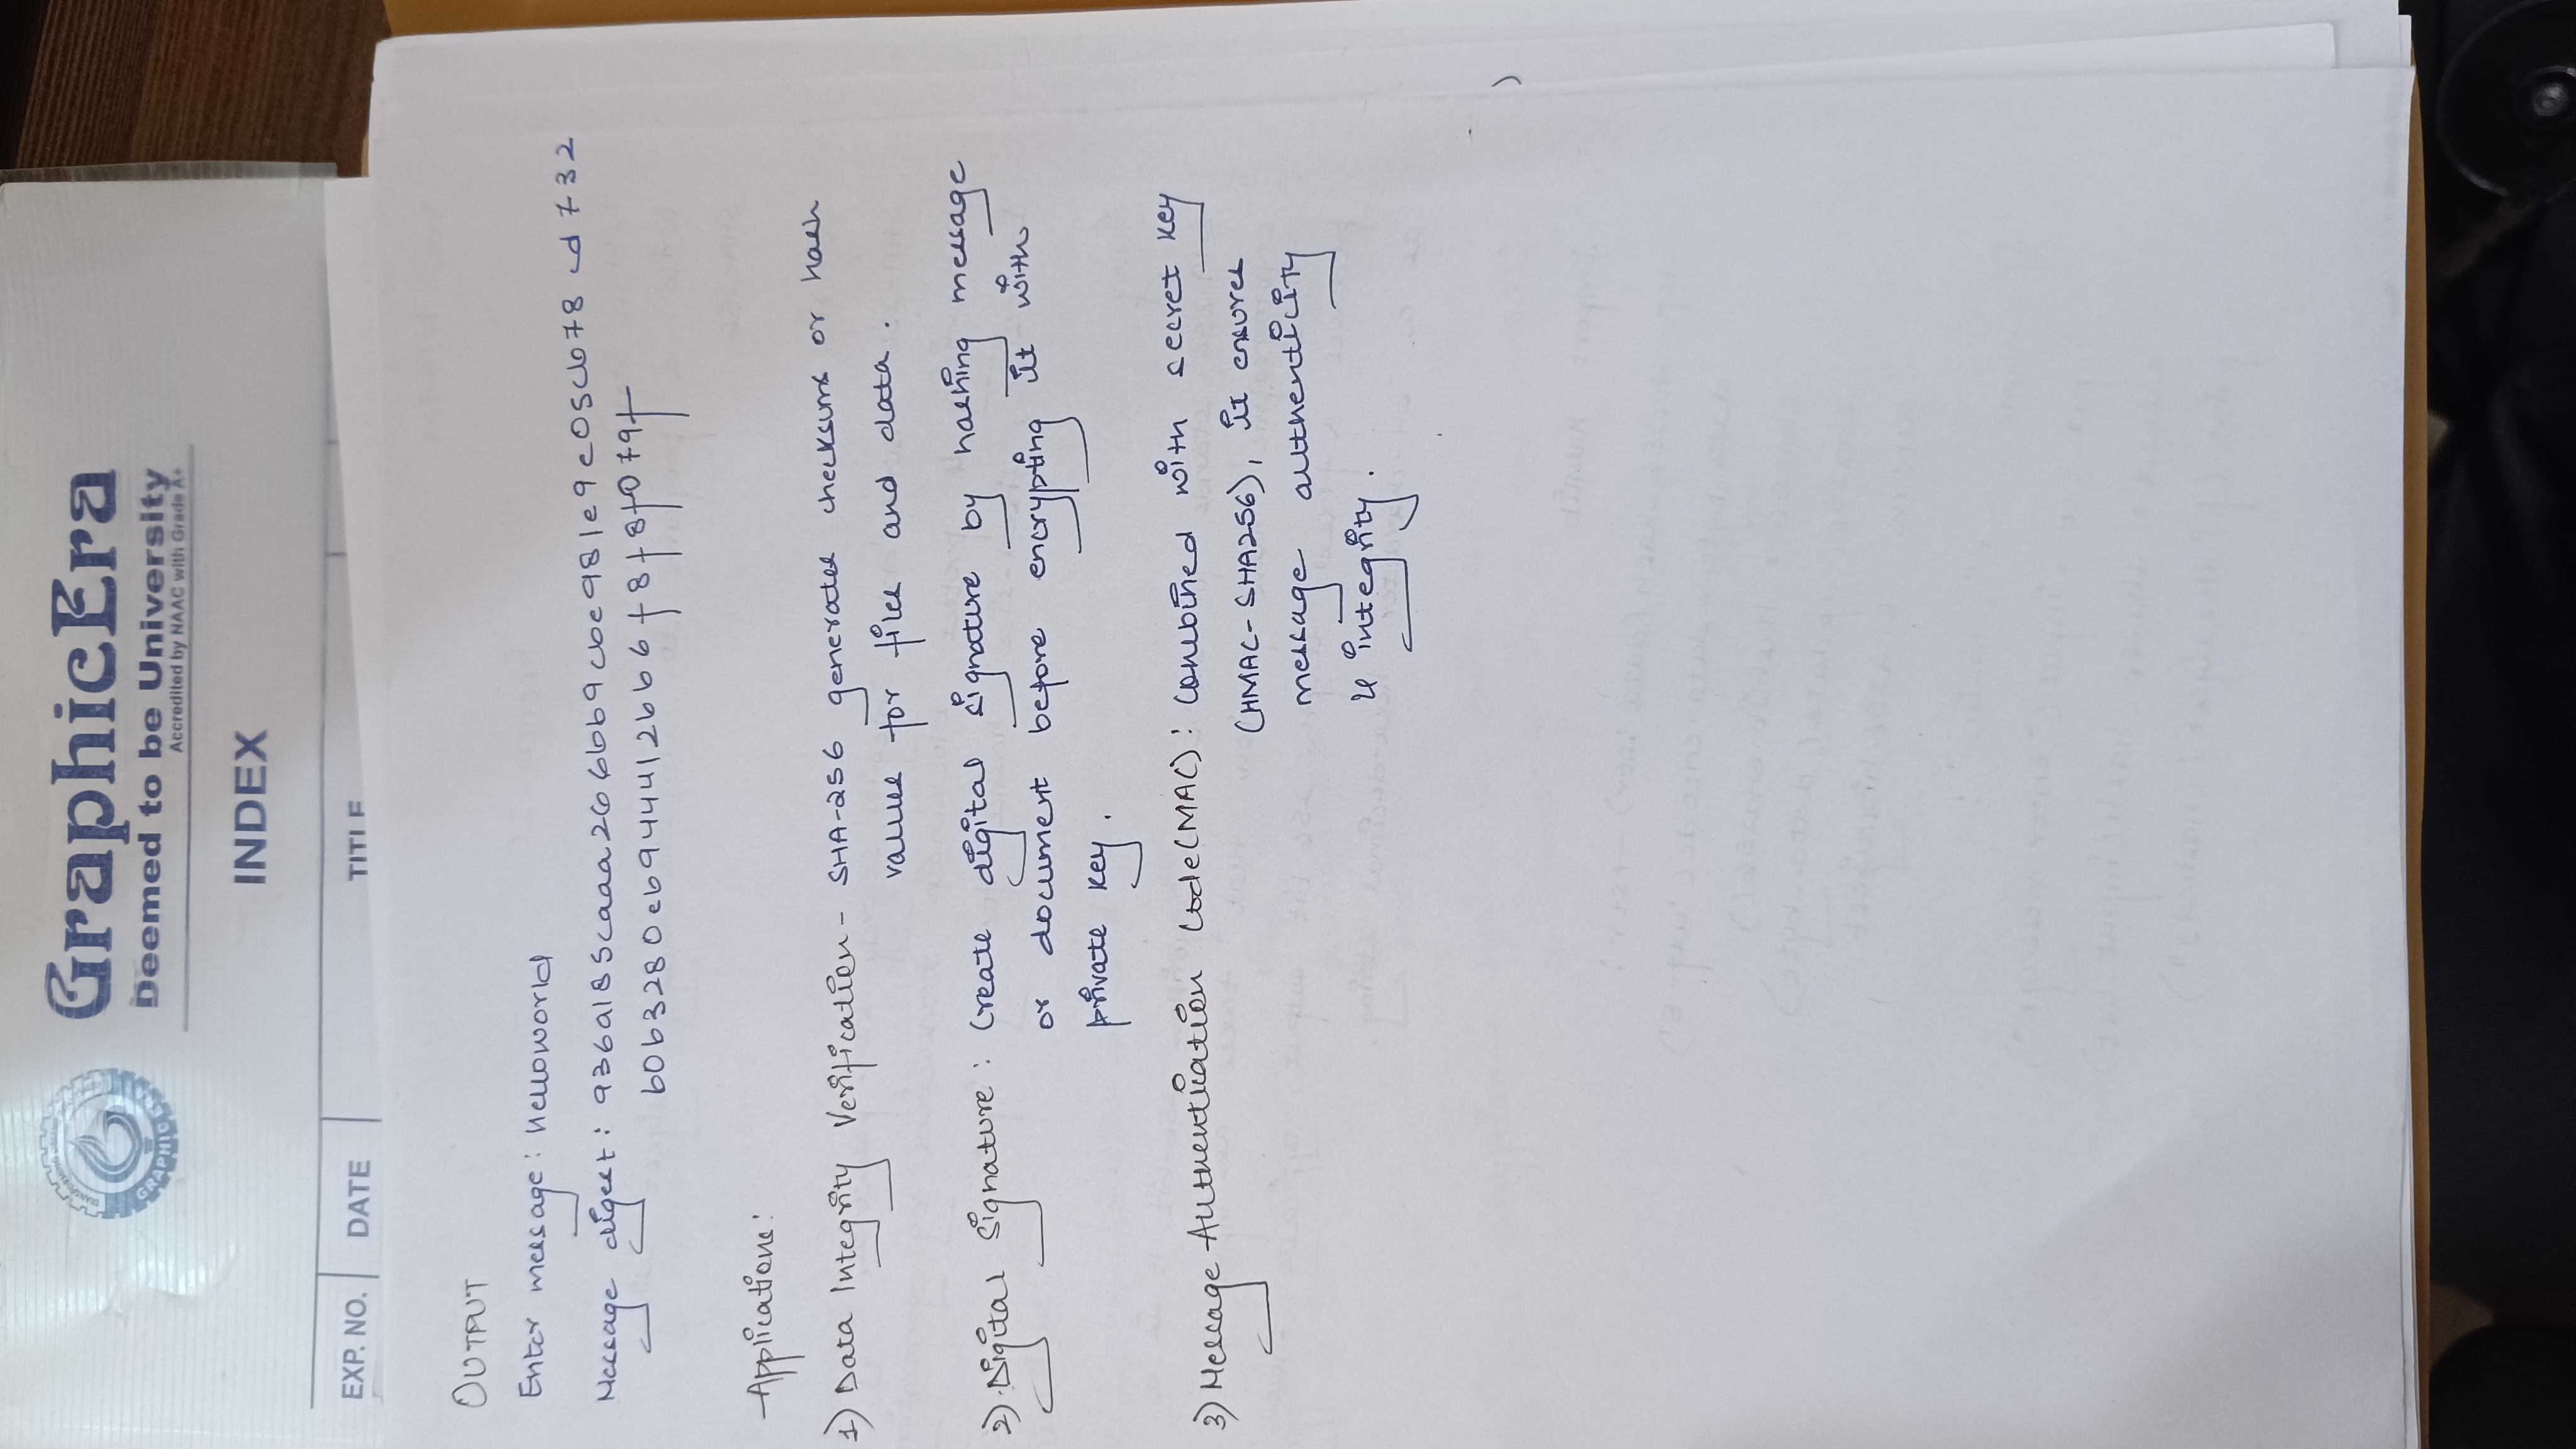 GraphicEra
Deemed to be University
Accredited by NAAC with Grade A+
INDEX
EXP. NO. DATE TITLE
OUTPUT
Enter message: helloworld
Message digest: 936a185caaa266bb9cbe981e9e05cb78cd732
b0b3280eb944412bb6f8f8f07af
Applications:
1) Data Integrity Verification - SHA-256 generates checksums or hash
values for files and data.
2) Digital Signature: Create digital signature by hashing message
or document before encrypting it with
private key.
3) Message Authentication Code (MAC): Combined with secret key
(HMAC-SHA256), it ensures
message authenticity
& integrity.